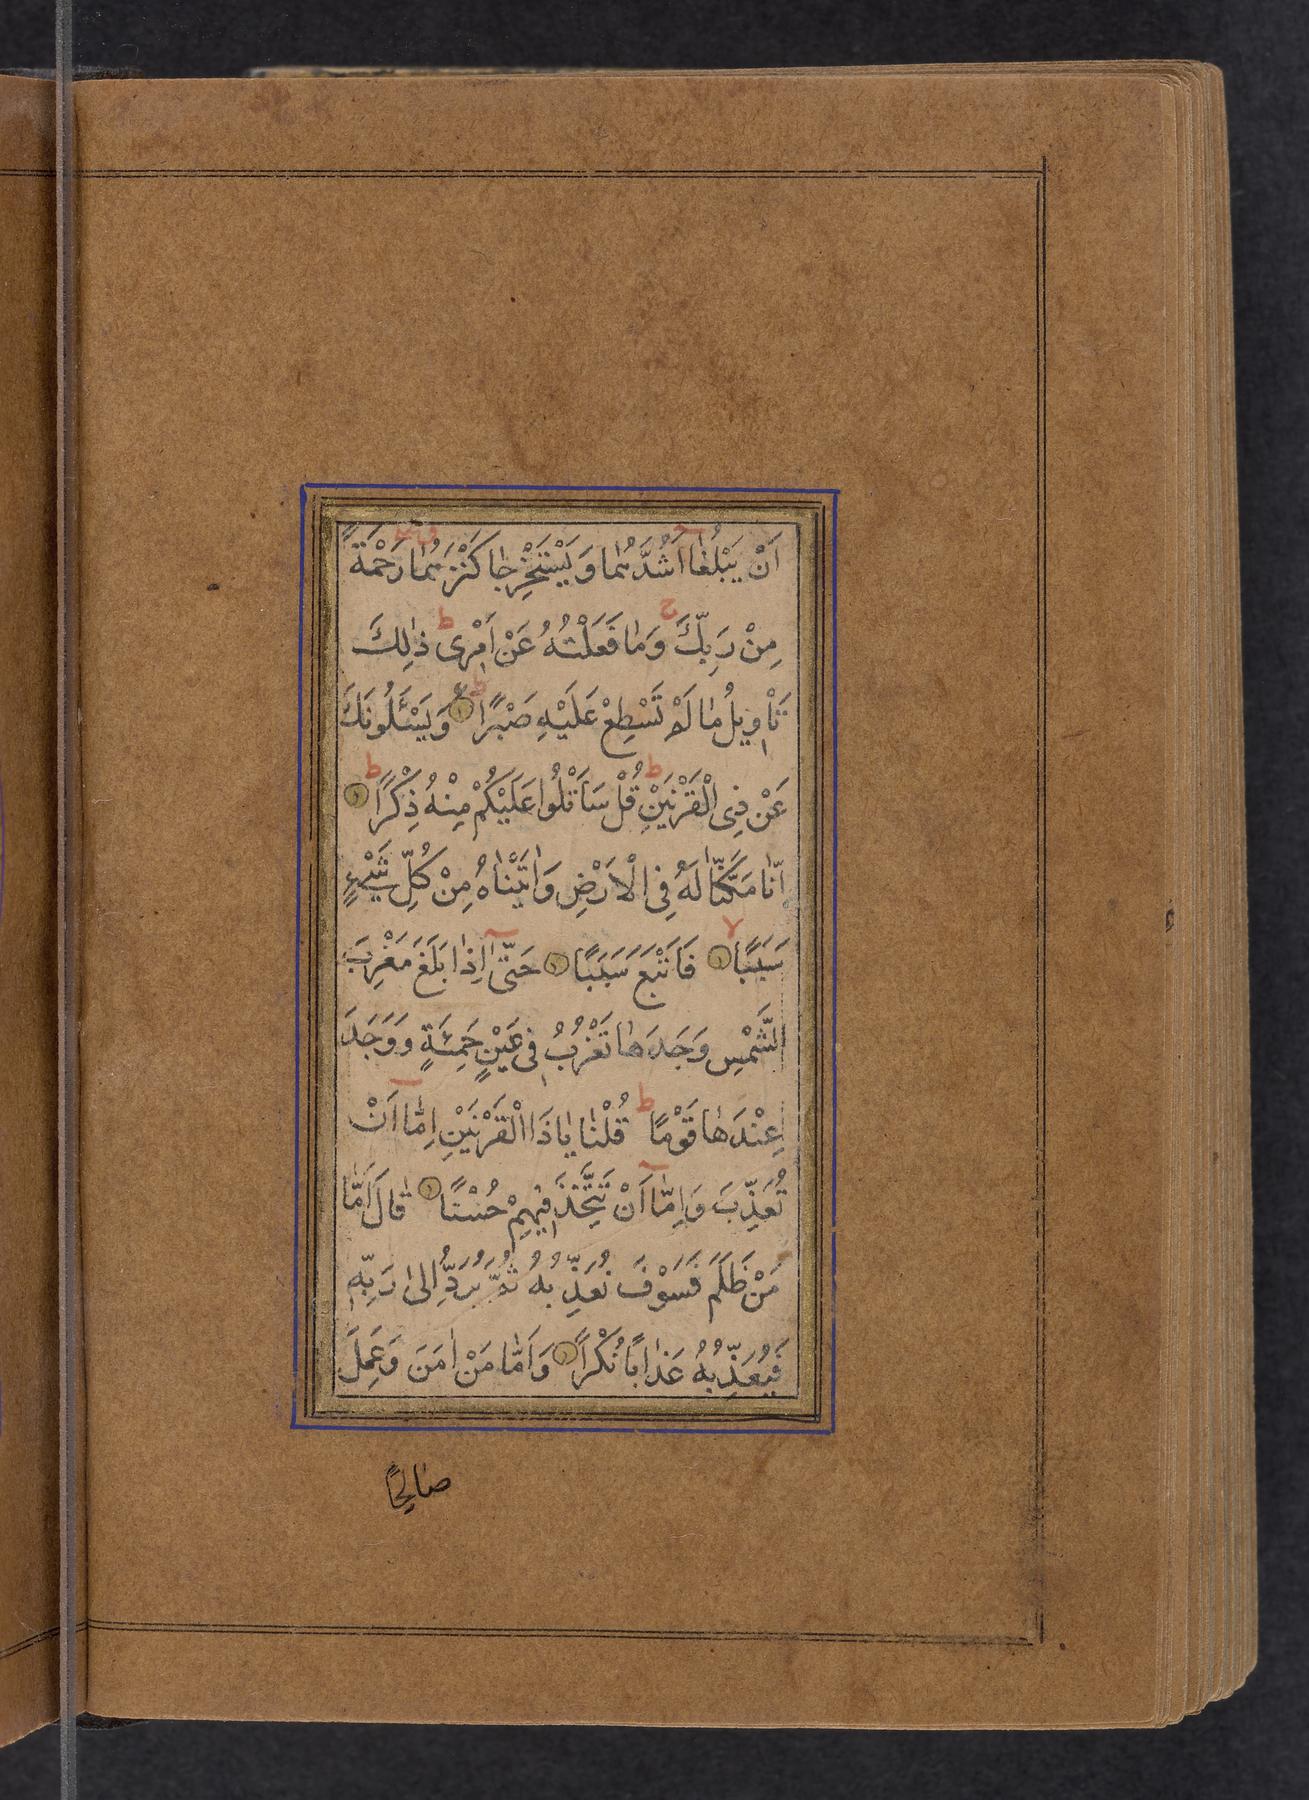 اَنْ يَبْلُغٰا اَشُدَّهُمٰا وَيَسْتَخْرِجٰا كَنْزَهُمٰا رَحْمَةً
مِنْ رَبِّكَ وَمٰا فَعَلْتُهُ عَنْ اَمْرِى ذٰلِكَ
تَاْوِيلُ مٰا لَمْ تَسْطِعْ عَلَيْهِ صَبْرًا وَيَسْـَٔلُونَكَ
عَنْ ذِى الْقَرْنَيْنِ قُلْ سَاَتْلُوا عَلَيْكُمْ مِنْهُ ذِكْرًا
اِنّٰا مَكَّنّٰا لَهُ فِى الْاَرْضِ وَاٰتَيْنٰاهُ مِنْ كُلِّ شَيْءٍ
سَبَبًا فَاَتْبَعَ سَبَبًا حَتّٰى اِذٰا بَلَغَ مَغْرِبَ
الشَّمْسِ وَجَدَهٰا تَغْرُبُ فِى عَيْنٍ حَمِئَةٍ وَوَجَدَ
عِنْدَهٰا قَوْمًا قُلْنٰا يٰا ذَا الْقَرْنَيْنِ اِمّٰا اَنْ
تُعَذِّبَ وَاِمّٰا اَنْ تَتَّخِذَ فِيهِمْ حُسْنًا قٰالَ اَمّٰا
مَنْ ظَلَمَ فَسَوْفَ نُعَذِّبُهُ ثُمَّ يُرَدُّ اِلىٰ رَبِّهِ
فَيُعَذِّبُهُ عَذٰابًا نُكْرًا وَاَمّٰا مَنْ اٰمَنَ وَعَمِلَ
صٰالِحًا